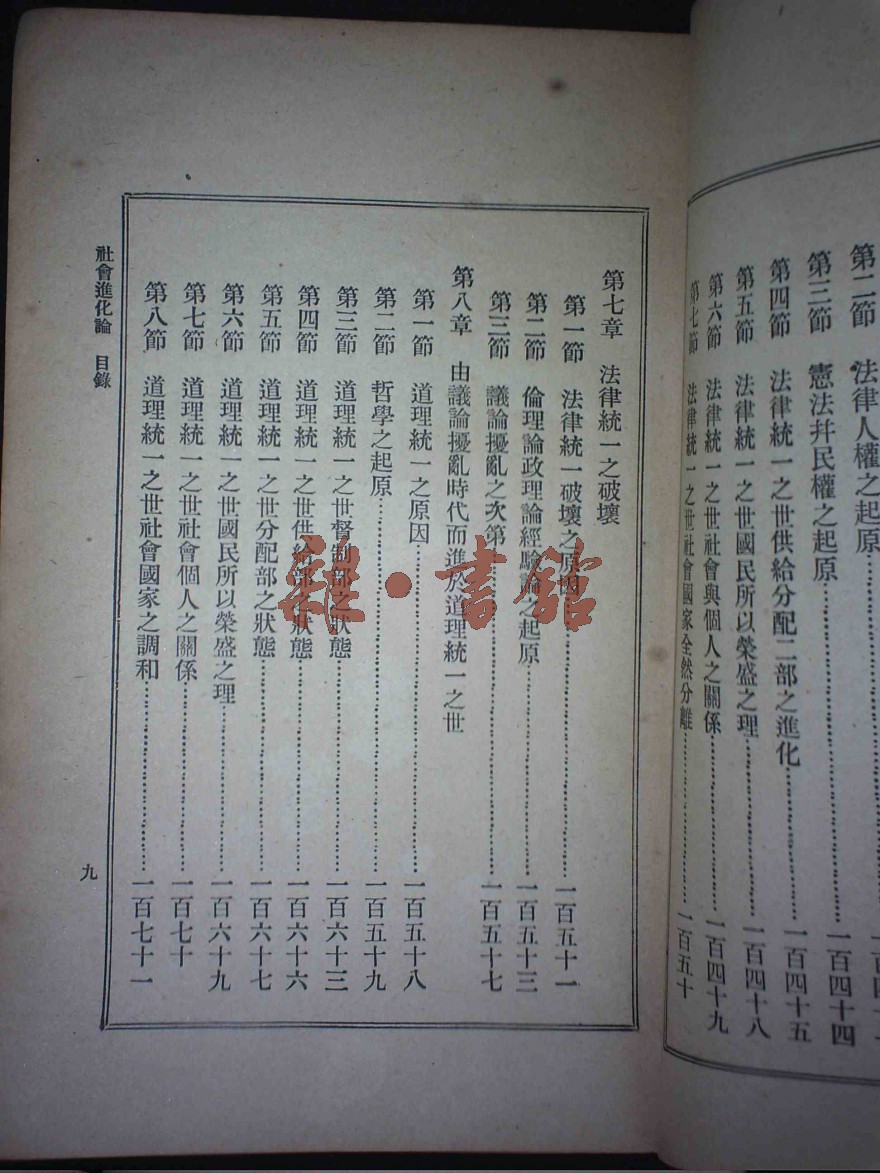 第二節 法律人權之起原
第三節 憲法幷民權之起原……一百四十四
第四節 法律統一之世供給分配二部之進化……一百四十五
第五節 法律統一之世國民所以榮盛之理……一百四十八
第六節 法律統一之世社會與個人之關係……一百四十九
第七節 法律統一之世社會國家全然分離……一百五十
第七章 法律統一之破壞
第一節 法律統一破壞之原因……一百五十一
第二節 倫理論政理論經驗論之起原……一百五十三
第三節 議論擾亂之次第……一百五十七
第八章 由議論擾亂時代而進於道理統一之世
第一節 道理統一之原因……一百五十八
第二節 哲學之起原……一百五十九
第三節 道理統一之世督制部之狀態……一百六十三
第四節 道理統一之世供給部之狀態……一百六十六
第五節 道理統一之世分配部之狀態……一百六十七
第六節 道理統一之世國民所以榮盛之理……一百六十九
第七節 道理統一之世社會個人之關係……一百七十
第八節 道理統一之世社會國家之調和……一百七十一
社會進化論 目錄
九
雜·書館